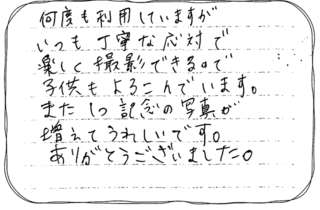 何度も利用していますが
いつも丁寧な応対で
楽しく撮影できるので
子供もよろこんでいます。
また1つ記念の写真が
増えてうれしいです。
ありがとうございました。